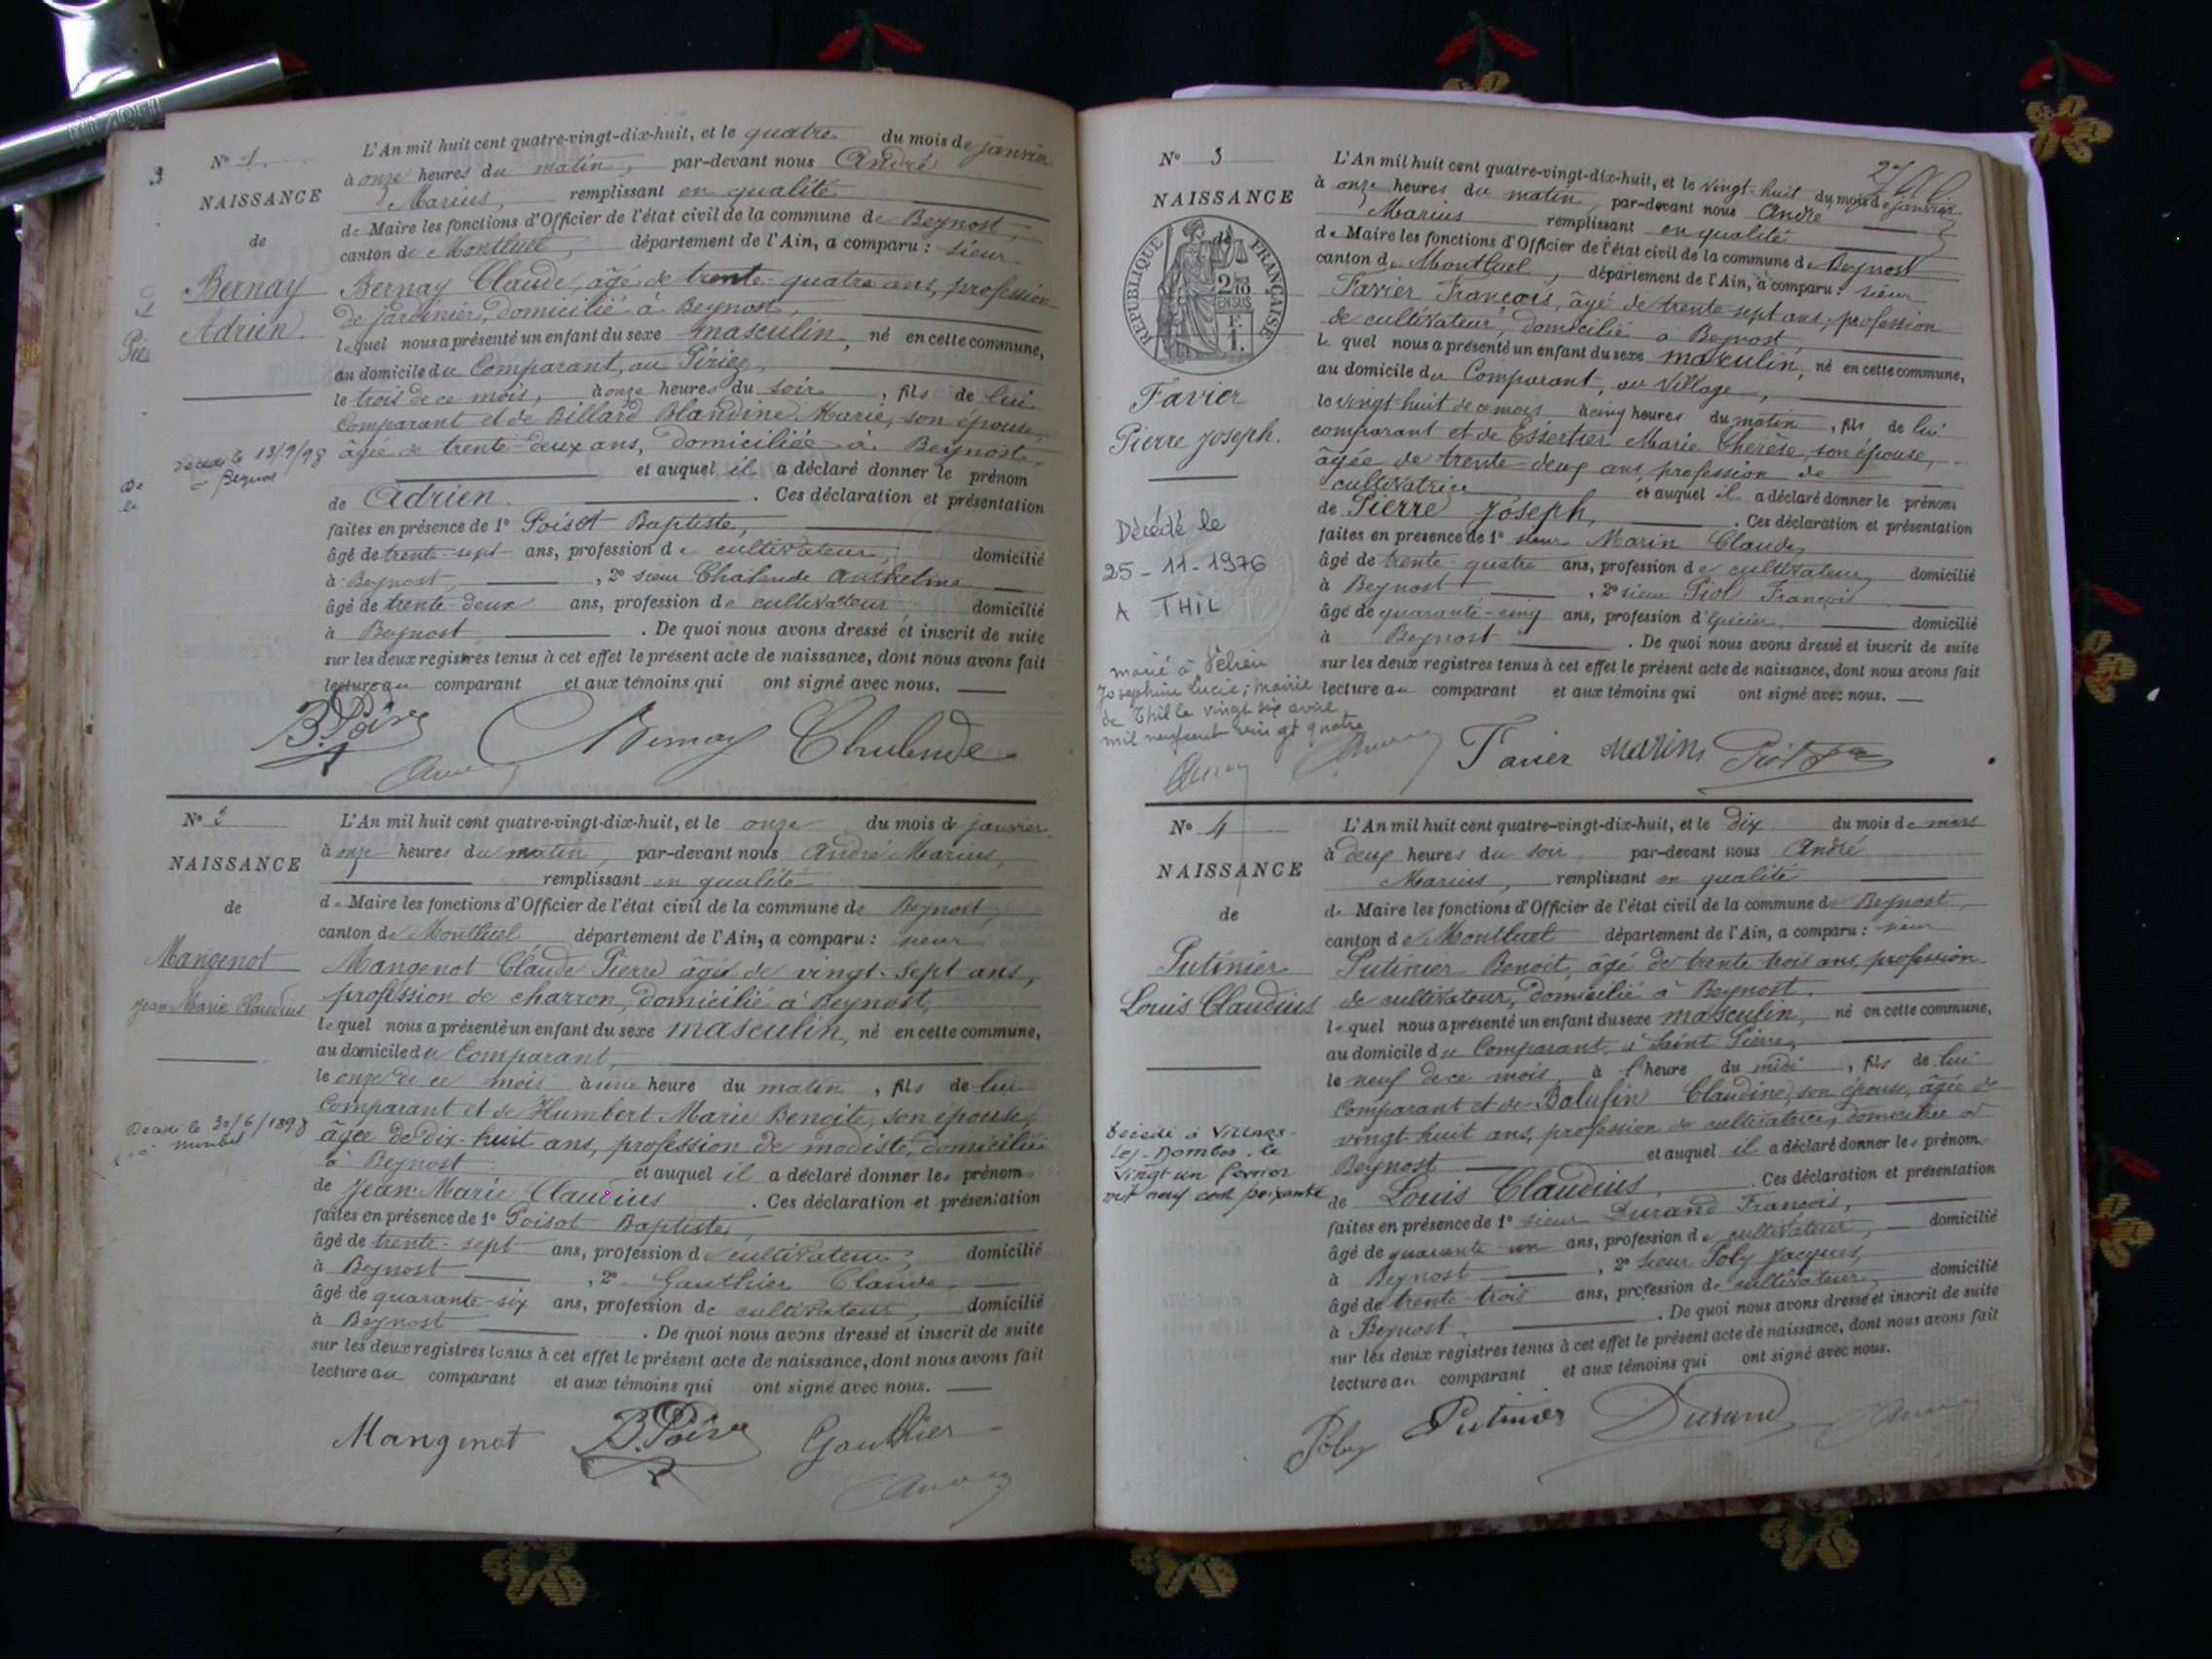 N° 1.
NAISSANCE
de
Bernay
Adrien.
décédé le 13/9/98
à Beynost
L'An mil huit cent quatre-vingt-dix-huit, et le quatre du mois de janvier
à onze heures du matin, par-devant nous André
Marius, remplissant en qualité
de Maire les fonctions d'Officier de l'état civil de la commune de Beynost,
canton de Montluel, département de l'Ain, a comparu : sieur
Bernay Claude, âgé de trente-quatre ans, profession
de jardinier, domicilié à Beynost,
lequel nous a présenté un enfant du sexe masculin, né en cette commune,
au domicile du Comparant, au
le trois de ce mois, à onze heures du soir, fils de lui
Comparant et de Billard Blandine Marie, son épouse,
âgée de trente-deux ans, domiciliée à Beynost,
et auquel il a déclaré donner le prénom
de Adrien. Ces déclaration et présentation
faites en présence de 1° Poisot Baptiste,
âgé de trente-sept ans, profession de cultivateur, domicilié
à Beynost, , 2° sieur Chalende Anthelme
âgé de trente-deux ans, profession de cultivateur domicilié
à Beynost, . De quoi nous avons dressé et inscrit de suite
sur les deux registres tenus à cet effet le présent acte de naissance, dont nous avons fait
lecture au comparant et aux témoins qui ont signé avec nous.
Bernay Chalende
N° 2
NAISSANCE
de
Mangenot
Jean Marie Claudius
Décédé le 30/6/1898
L'An mil huit cent quatre-vingt-dix-huit, et le onze du mois de janvier
à onze heures du matin, par-devant nous André Marius,
remplissant en qualité
de Maire les fonctions d'Officier de l'état civil de la commune de Beynost,
canton de Montluel département de l'Ain, a comparu : sieur
Mangenot Claude Pierre âgé de vingt-sept ans,
profession de charron, domicilié à Beynost,
lequel nous a présenté un enfant du sexe masculin, né en cette commune,
au domicile du Comparant,
le onze de ce mois à une heure du matin, fils de lui
Comparant et de Humbert Marie Benoite, son épouse,
âgée de dix-huit ans, profession de modiste, domiciliée
à Beynost et auquel il a déclaré donner les prénoms
de Jean-Marie Claudius . Ces déclaration et présentation
faites en présence de 1° Poisot Baptiste,
âgé de trente-sept ans, profession de cultivateur, domicilié
à Beynost , 2° Gauthier Claude
âgé de quarante-six ans, profession de cultivateur, domicilié
à Beynost . De quoi nous avons dressé et inscrit de suite
sur les deux registres tenus à cet effet le présent acte de naissance, dont nous avons fait
lecture au comparant et aux témoins qui ont signé avec nous.
Mangenot Gauthier
N° 3
NAISSANCE
REPUBLIQUE FRANÇAISE
Favier
Pierre Joseph.
Décédé le
25-11-1976
A THIL
marié à
Josephine Lucie, mairie
de Thil le vingt six avril
mil neuf cent vingt quatre
L'An mil huit cent quatre-vingt-dix-huit, et le vingt-huit du mois de janvier
à onze heures du matin, par-devant nous André
Marius remplissant en qualité
de Maire les fonctions d'Officier de l'état civil de la commune de Beynost
canton de Montluel, département de l'Ain, a comparu : sieur
Favier François, âgé de trente-sept ans, profession
de cultivateur, domicilié à Beynost,
lequel nous a présenté un enfant du sexe masculin, né en cette commune,
au domicile du Comparant, au Village,
le vingt-huit de ce mois à cinq heures du matin, fils de lui
comparant et de Essertier Marie Thérèse, son épouse,
âgée de trente-deux ans, profession de
cultivatrice et auquel il a déclaré donner le prénom
de Pierre Joseph, . Ces déclaration et présentation
faites en présence de 1° sieur Marin Claude,
âgé de trente-quatre ans, profession de cultivateur, domicilié
à Beynost , 2° sieur Piot François
âgé de quarante-cinq ans, profession d'épicier, domicilié
à Beynost . De quoi nous avons dressé et inscrit de suite
sur les deux registres tenus à cet effet le présent acte de naissance, dont nous avons fait
lecture au comparant et aux témoins qui ont signé avec nous.
Favier Marin Piot
N° 4
NAISSANCE
de
Putinier
Louis Claudius
Décédé à VILLARS-
les-Dombes le
vingt un février
mil neuf cent soixante
L'An mil huit cent quatre-vingt-dix-huit, et le dix du mois de mars
à deux heures du soir par-devant nous André
Marius, remplissant en qualité
de Maire les fonctions d'Officier de l'état civil de la commune de Beynost,
canton de Montluel département de l'Ain, a comparu : sieur
Putinier Benoit, âgé de trente trois ans, profession
de cultivateur, domicilié à Beynost,
lequel nous a présenté un enfant du sexe masculin, né en cette commune,
au domicile du Comparant, à Saint Pierre,
le neuf de ce mois à l'heure du midi, fils de lui
Comparant et de Claudine, son épouse, âgée de
vingt-huit ans, profession de cultivatrice, domiciliée à
Beynost et auquel il a déclaré donner les prénoms
de Louis Claudius, . Ces déclaration et présentation
faites en présence de 1° sieur Durand François,
âgé de quarante-un ans, profession de cultivateur, domicilié
à Beynost , 2° sieur Poly Jacques,
âgé de trente trois ans, profession de cultivateur, domicilié
à Beynost, . De quoi nous avons dressé et inscrit de suite
sur les deux registres tenus à cet effet le présent acte de naissance, dont nous avons fait
lecture au comparant et aux témoins qui ont signé avec nous.
Poly Putinier Durand